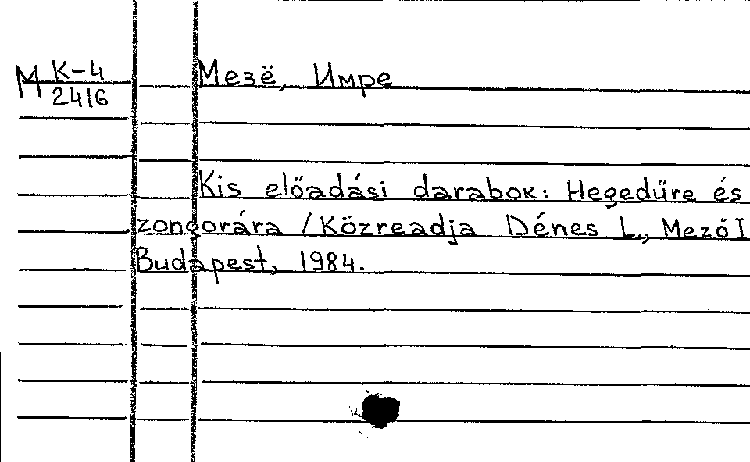 М К-4
2416
Мезё, Имре
Kis előadási darabok: Hegedűre és
zongorára / Közreadja Dénes L., Mező I
Budapest, 1984.